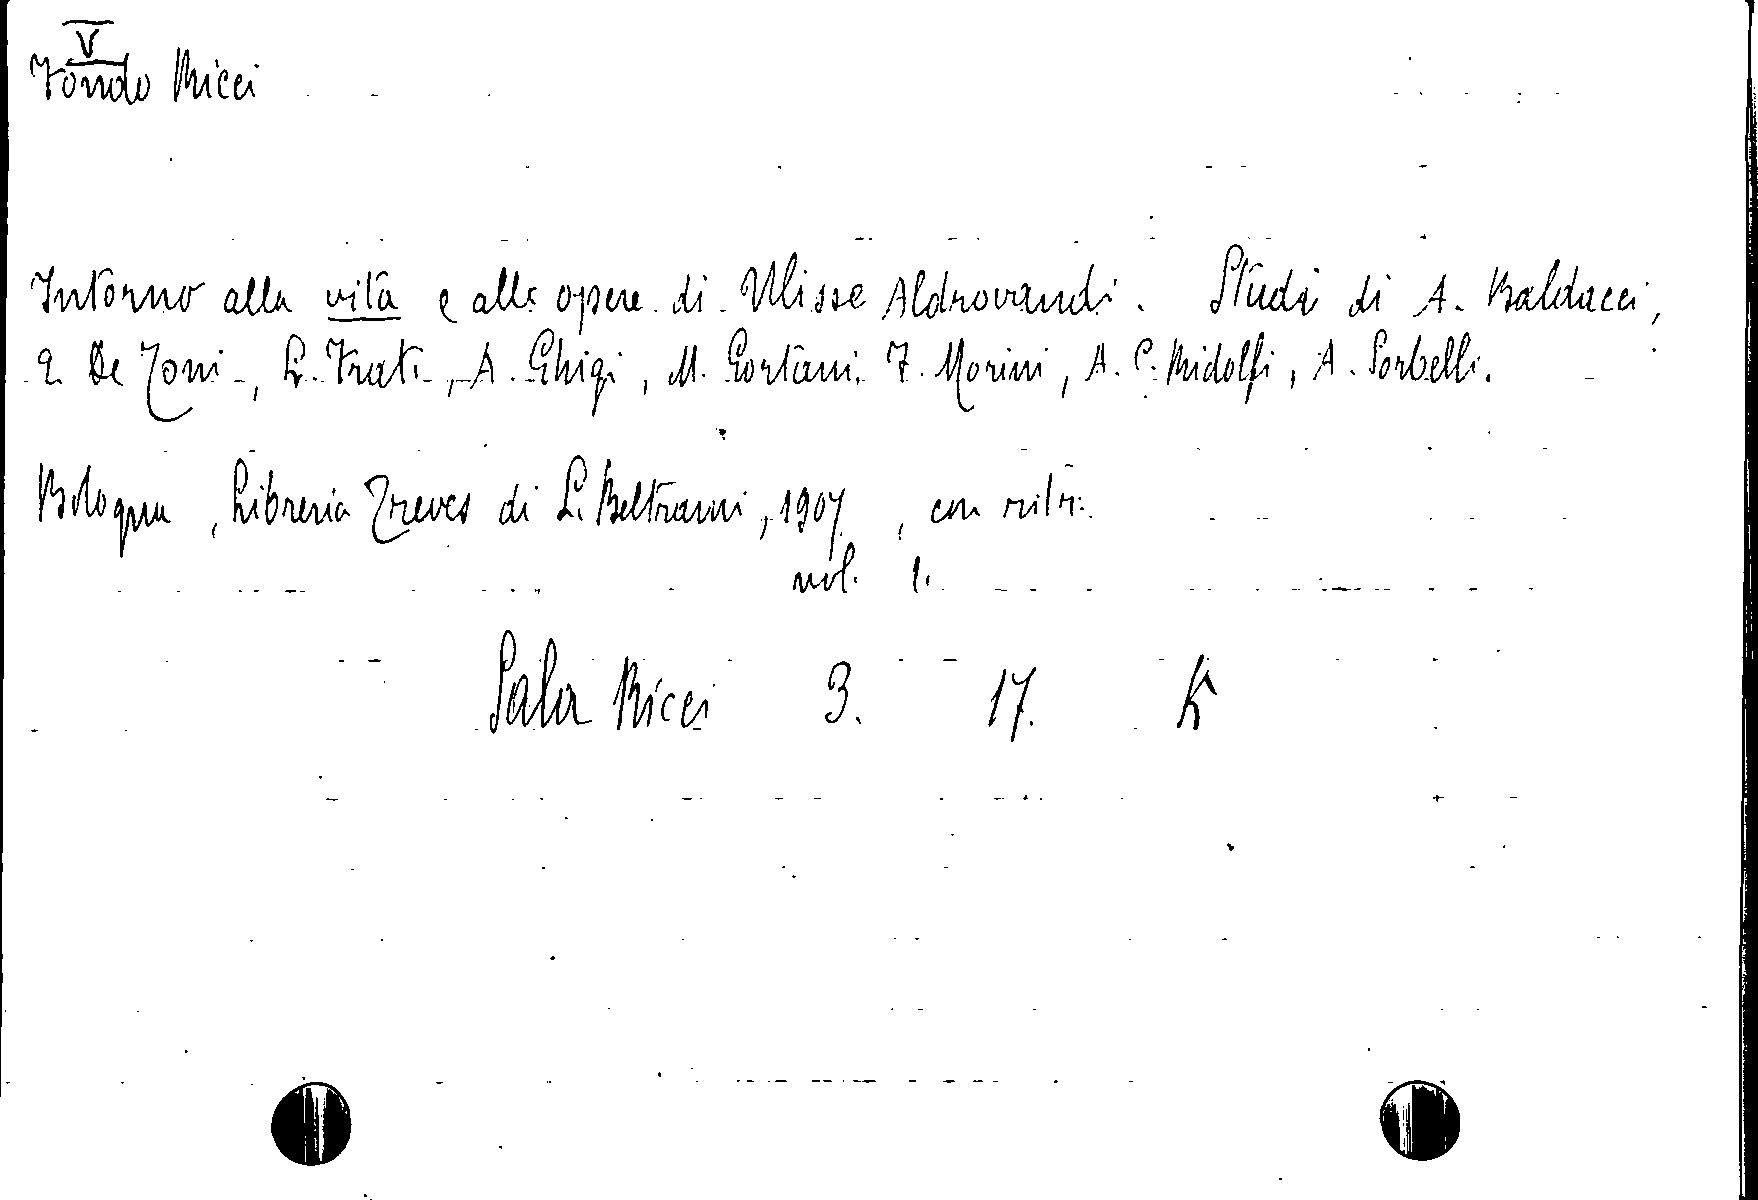 V
Fondo Ricci
Intorno alla vita e alle opere di Ulisse Aldrovandi. Studi di A. Baldacci,
E. De Toni, L. Frati, A. Ghigi, M. Gortani, F. Morini, A. C. Ridolfi, A. Sorbelli.
Bologna, Libreria Treves di L. Beltrami, 1907, con ritr.
vol. 1.
Sala Ricci 3. 17. K